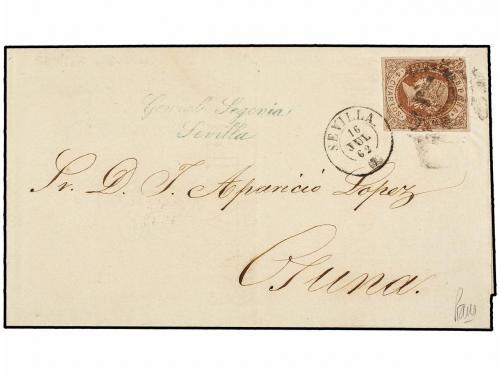 4 CUARTOS
Gonzalo Segovia
Sevilla
SEVILLA
16
JUL
62
Sr. D. J. Aparicio Lopez
Osuna.